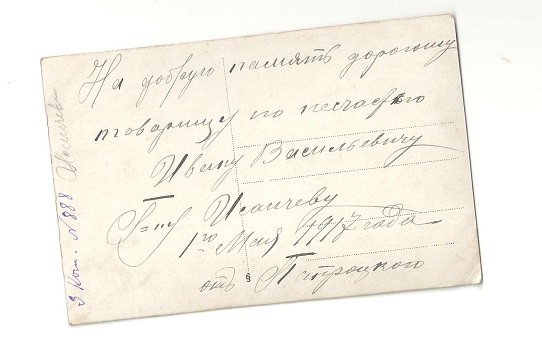 На добрую память дорогому
товарищу по несчастью
Ивану Васильевичу
Г=ну Исаичеву
1го Мая 1917 года
отъ Патроцкого
3 Кот. N 888 Исаичева